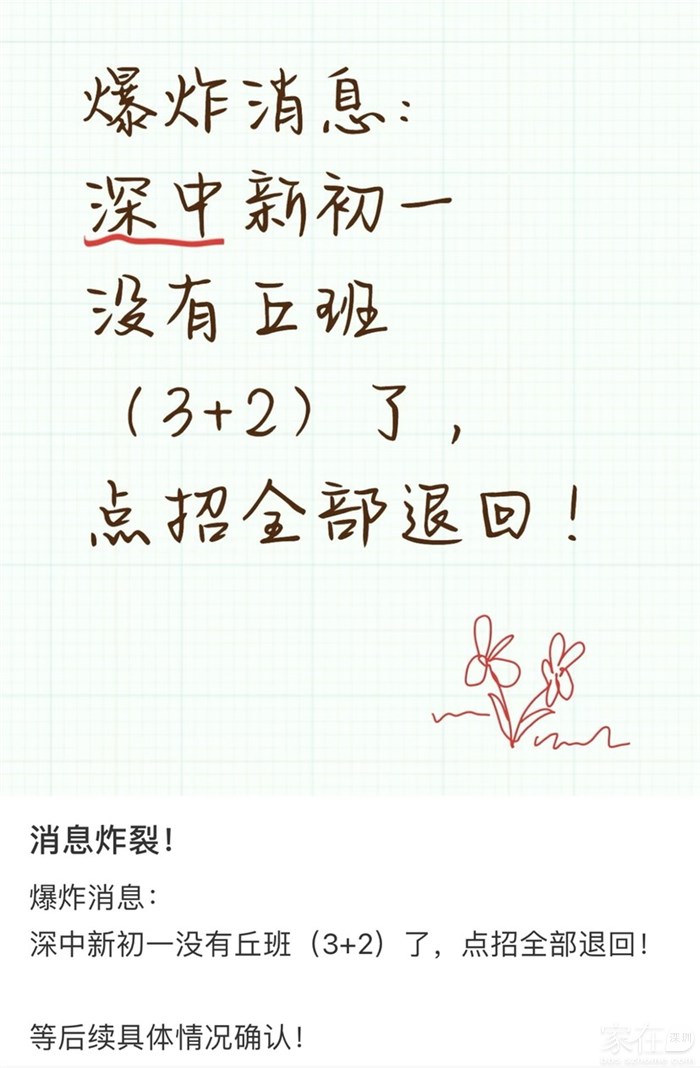 爆炸消息：
深中新初一
没有丘班
（3+2）了，
点招全部退回！
消息炸裂！
爆炸消息：
深中新初一没有丘班（3+2）了，点招全部退回！
等后续具体情况确认！
家在深圳